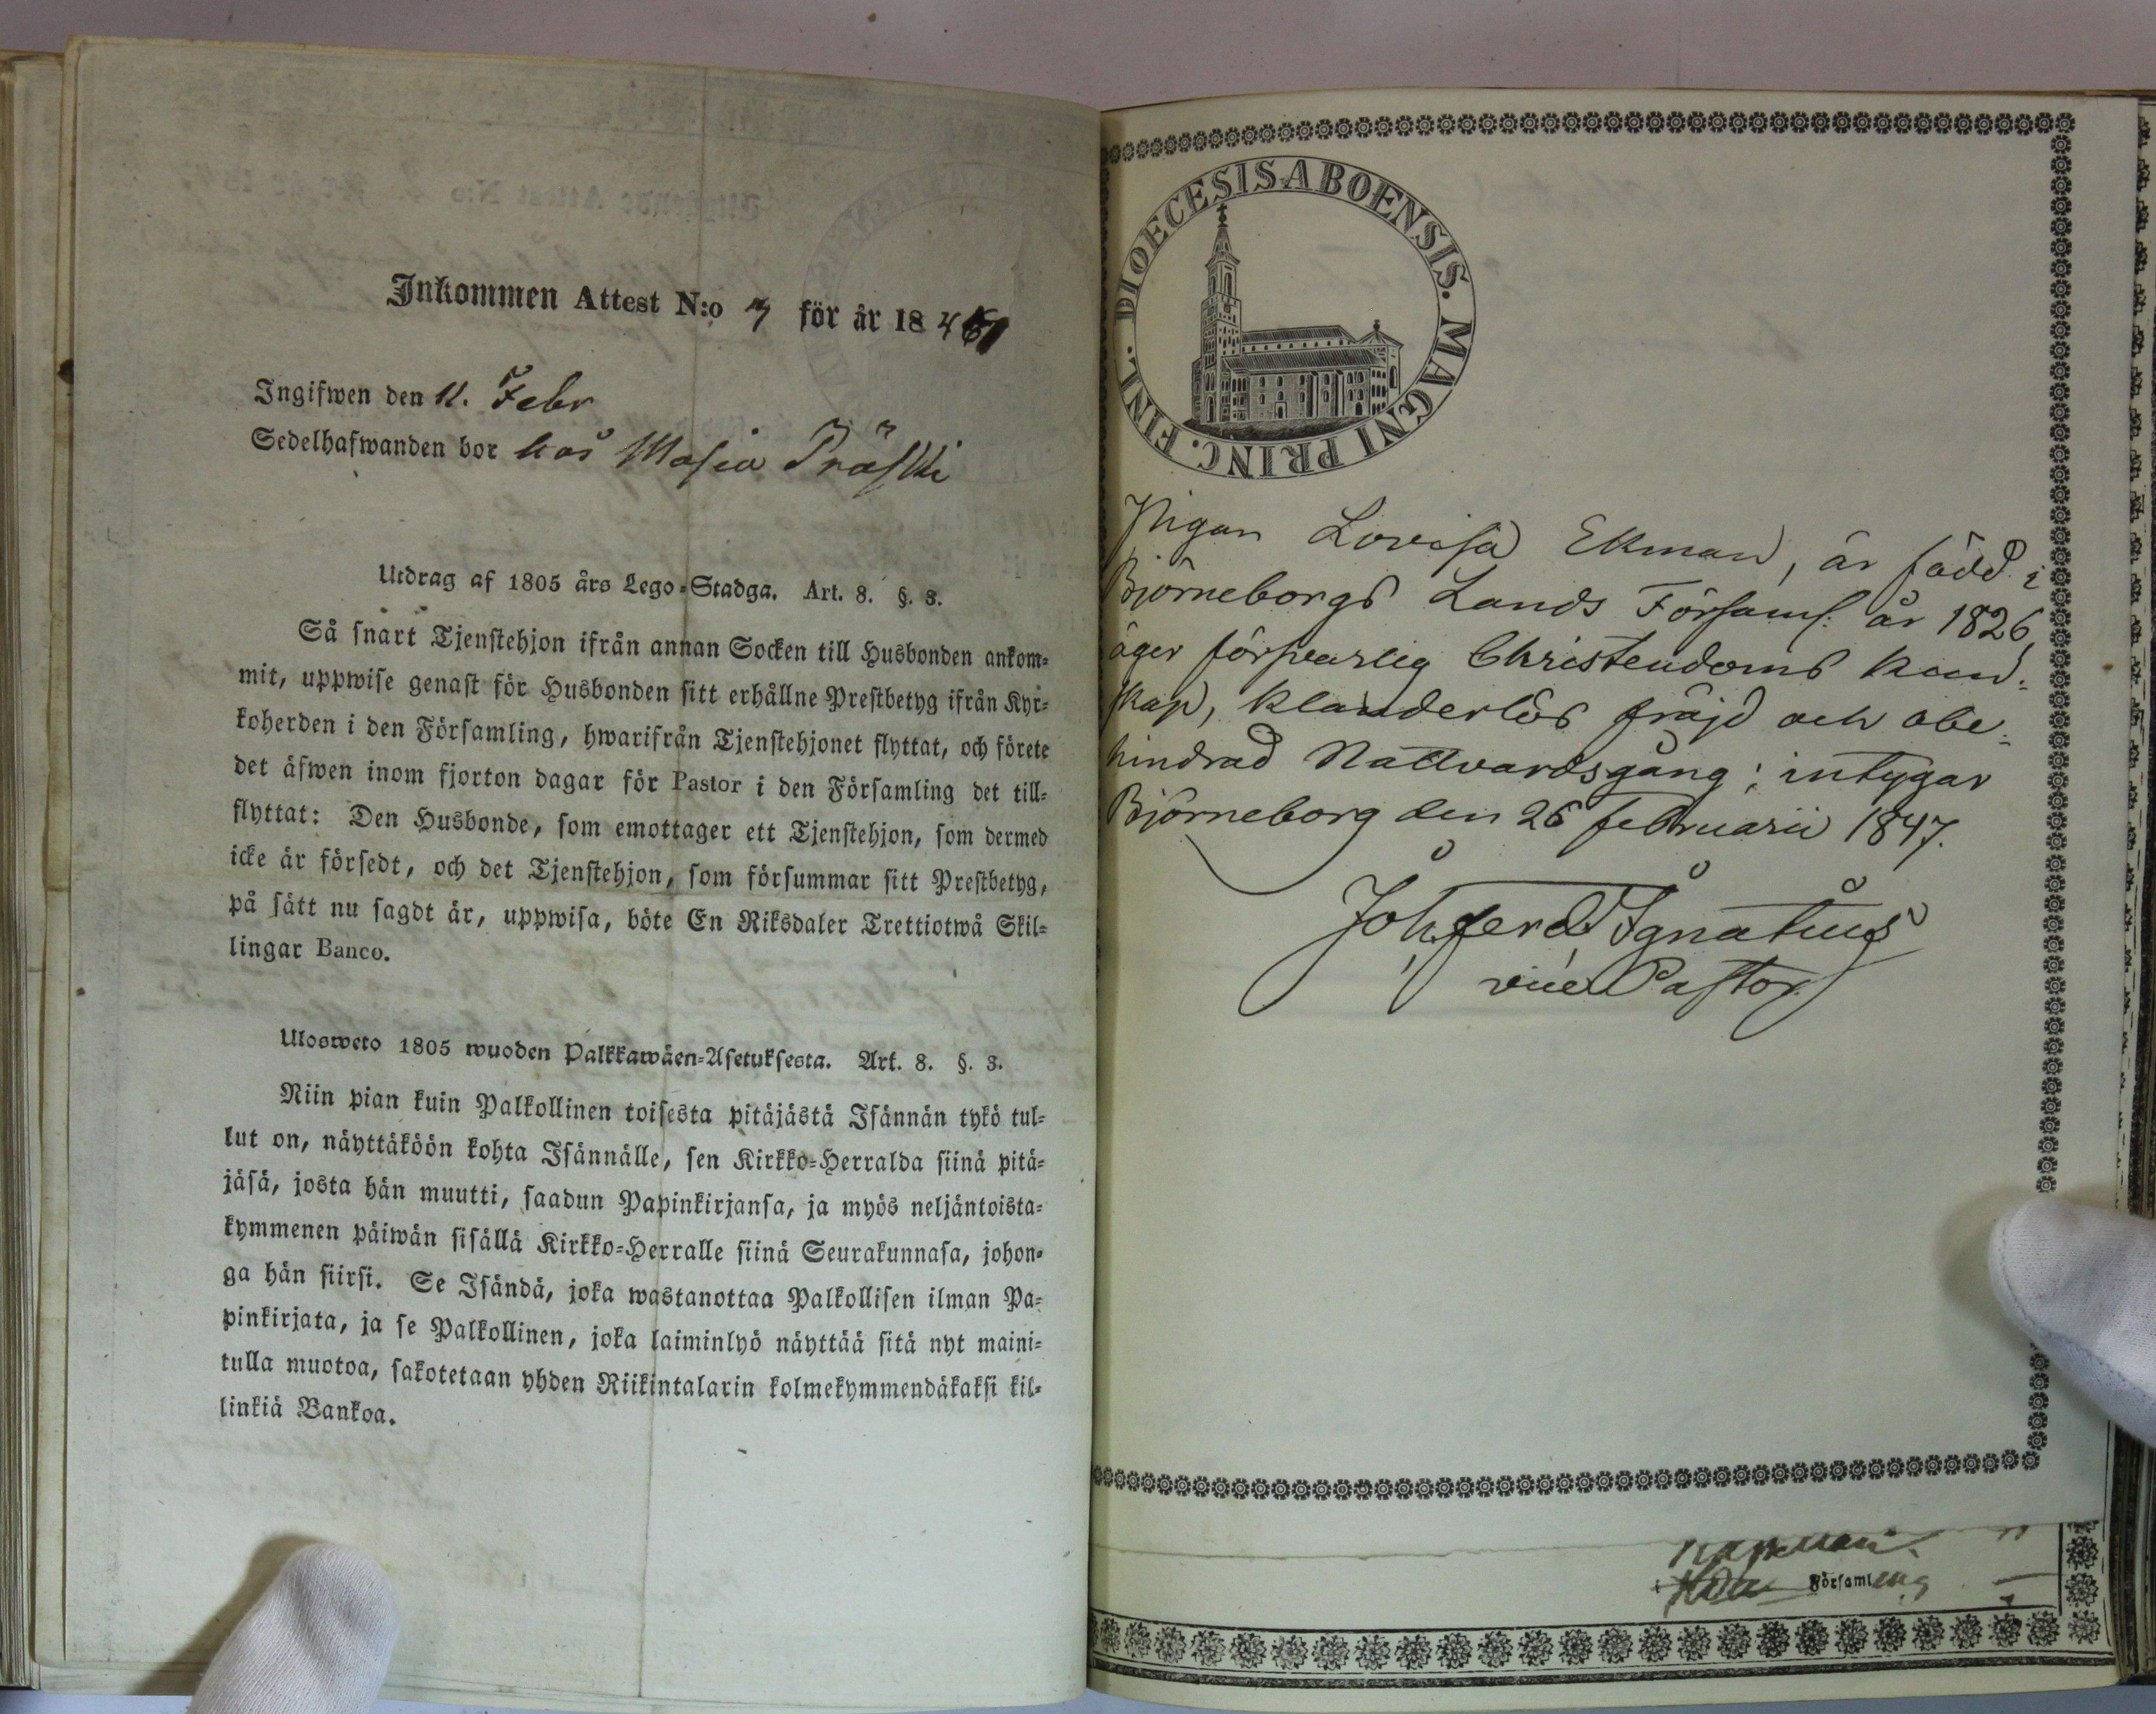 Inkommen Attest N:o 7 för år 1847
Ingifwen den 11. Febr
Sedelhafwanden bor hos Maria Präski
Utdrag af 1805 års Lego-Stadga. Art. 8. §. 3.
Så snart Tjenstehjon ifrån annan Socken till Husbonden ankom-
mit, uppwise genast för Husbonden sitt erhållne Prestbetyg ifrån Kyr-
koherden i den Församling, hwarifrån Tjenstehjonet flyttat, och förete
det äfwen inom fjorton dagar för Pastor i den Församling det till-
flyttat: Den Husbonde, som emottager ett Tjenstehjon, som dermed
icke är försedt, och det Tjenstehjon, som försummar sitt Prestbetyg,
på sätt nu sagdt är, uppwisa, böte En Riksdaler Trettiotwå Skil-
lingar Banco.
Ulosweto 1805 wuoden Palkkawäen-Asetuksesta. Art. 8. §. 3.
Niin pian kuin Palkollinen toisesta pitäjästä Isännän tykö tul-
lut on, näyttäköön kohta Isännälle, sen Kirkko-Herralda siinä pitä-
jäsä, josta hän muutti, saadun Papinkirjansa, ja myös neljäntoista-
kymmenen päiwän sisällä Kirkko-Herralle siinä Seurakunnasa, johon-
ga hän siirsi. Se Isändä, joka wastanottaa Palkollisen ilman Pa-
pinkirjata, ja se Palkollinen, joka laiminlyö näyttää sitä nyt maini-
tulla muotoa, sakotetaan yhden Riikintalarin kolmekymmendäkaksi kil-
linkiä Bankoa.
DIOECESIS ABOENSIS. MAGNI PRINC. FINL.
Pigan Lovisa Ekman, är född i
Björneborgs Lands Församl. år 1826,
äger försvarlig Christendoms kun-
skap, klanderlös fräjd och obe-
hindrad Nattvardsgång; intygar
Björneborg den 26 februarii 1847.
Joh. Ferd. Ignatius
vice Pastor
Kapellan.
Församling